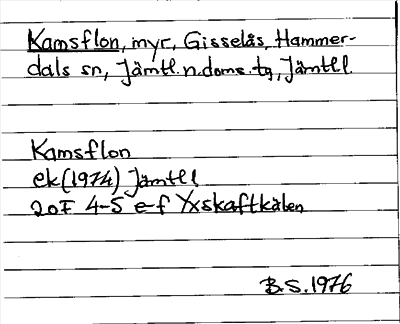 Kamsflon, myr, Gisselås, Hammer-
dals sn, Jämtl. n. doms. tg, Jämtl l.
Kamsflon
ek (1974) Jämtl l
20F 4-5 e-f Yxskaftkälen
B.S. 1976